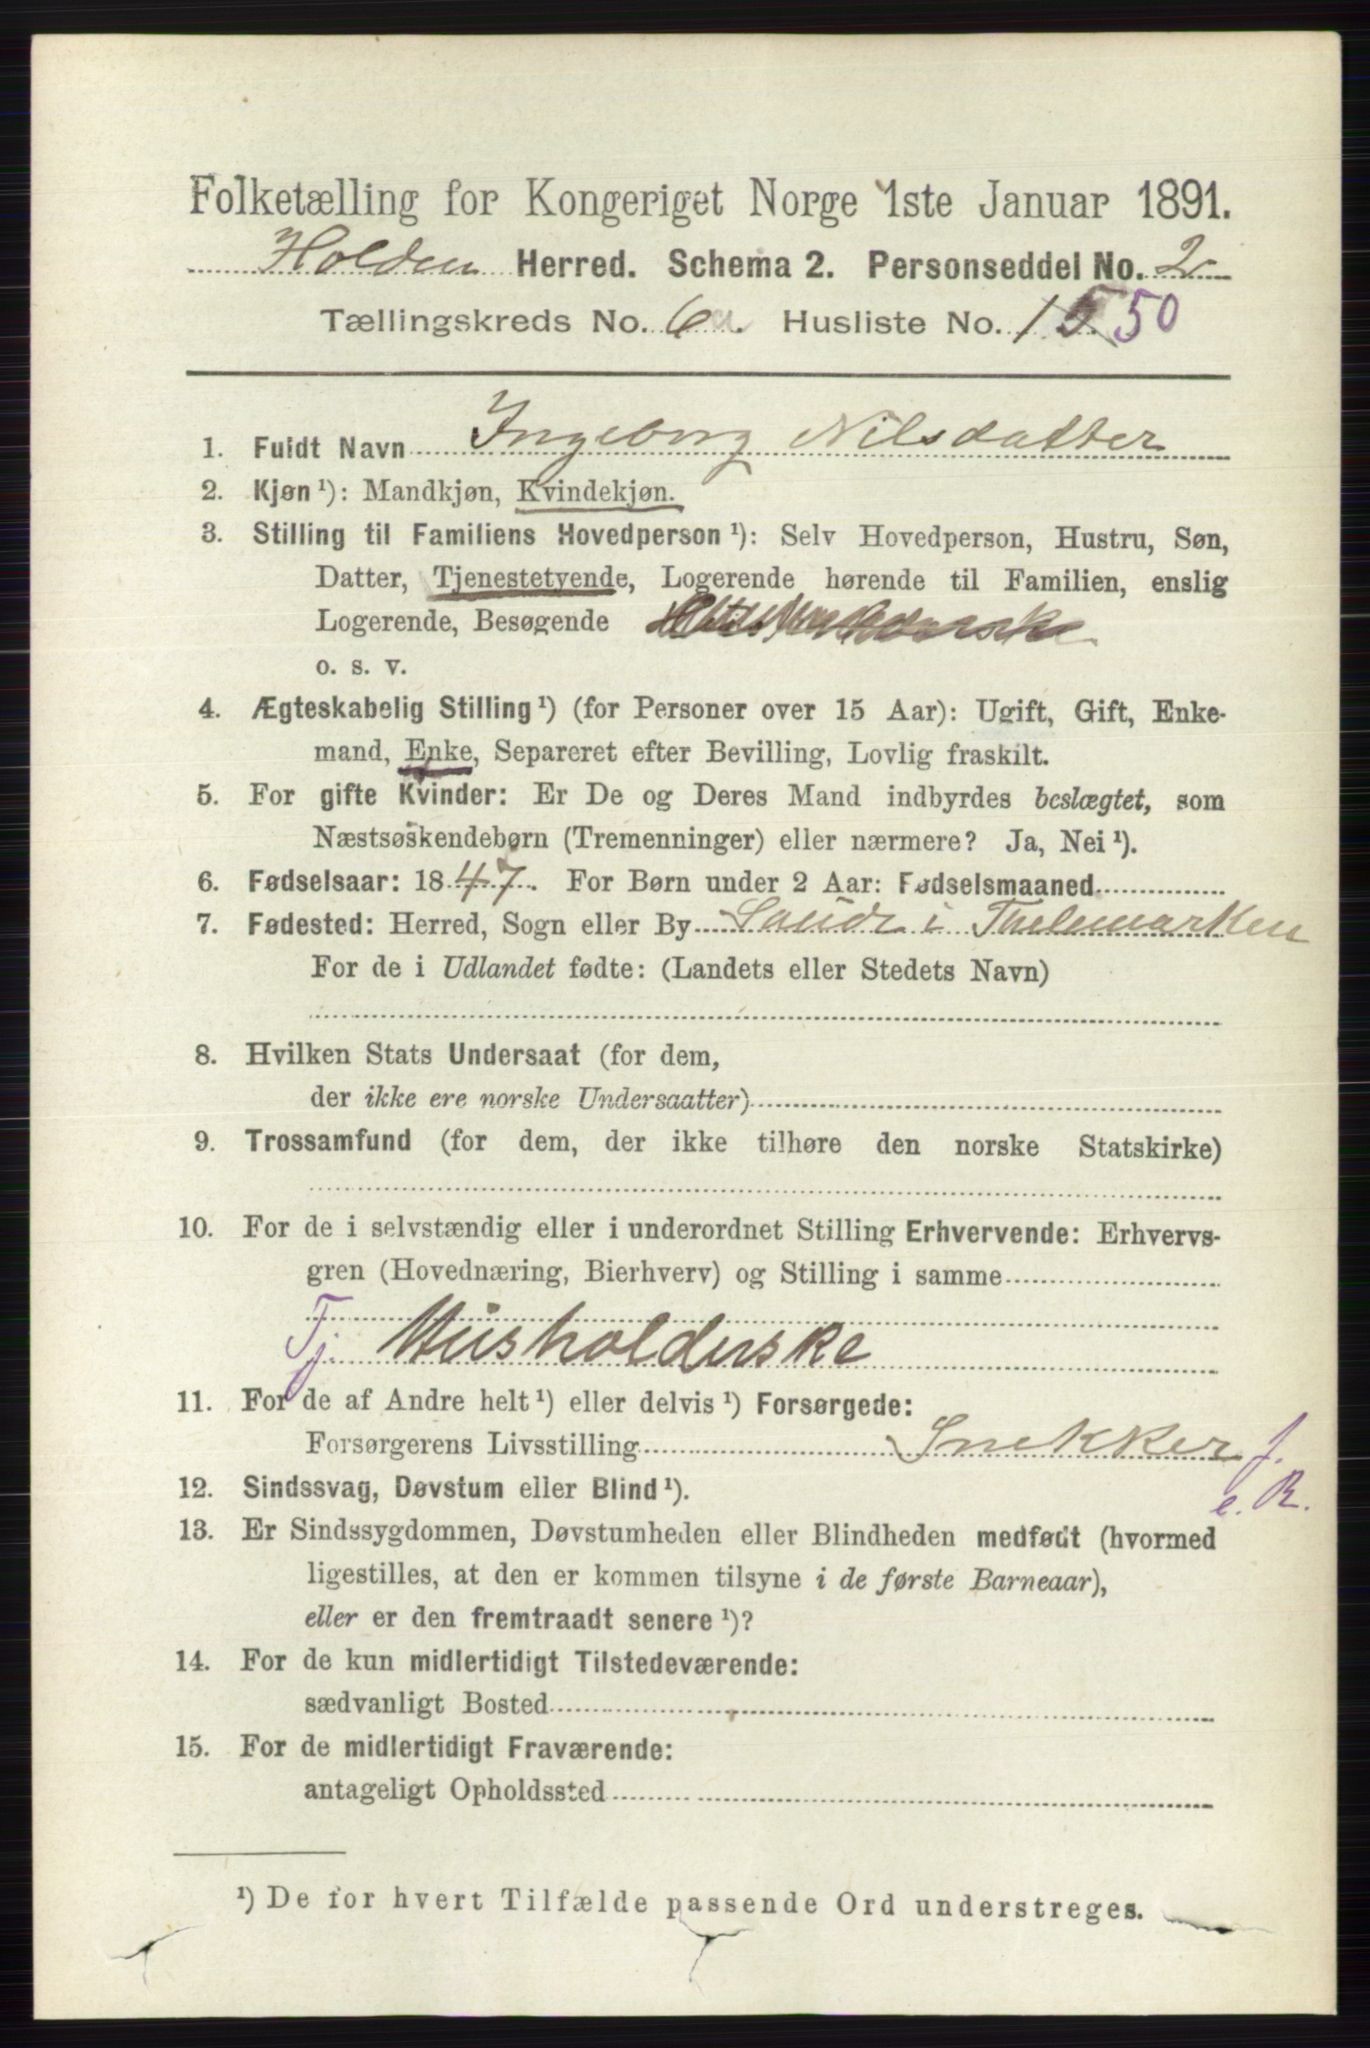 Folketælling for Kongeriget Norge 1ste Januar 1891.
Holden Herred. Schema 2. Personseddel No. 2
Tællingskreds No. 6a. Husliste No. 15 50
1. Fuldt Navn Ingeborg Nilsdatter
2. Kjøn ¹): Mandkjøn, Kvindekjøn.
3. Stilling til Familiens Hovedperson ¹): Selv Hovedperson, Hustru, Søn,
Datter, Tjenestetyende, Logerende hørende til Familien, enslig
Logerende, Besøgende
o. s. v.
4. Ægteskabelig Stilling ¹) (for Personer over 15 Aar): Ugift, Gift, Enke-
mand, Enke, Separeret efter Bevilling, Lovlig fraskilt.
5. For gifte Kvinder: Er De og Deres Mand indbyrdes beslægtet, som
Næstsøskendebørn (Tremenninger) eller nærmere? Ja, Nei ¹).
6. Fødselsaar: 1847. For Børn under 2 Aar: Fødselsmaaned
7. Fødested: Herred, Sogn eller By Saude i Thelemarken
For de i Udlandet fødte: (Landets eller Stedets Navn)
8. Hvilken Stats Undersaat (for dem,
der ikke ere norske Undersaatter)
9. Trossamfund (for dem, der ikke tilhøre den norske Statskirke)
10. For de i selvstændig eller i underordnet Stilling Erhvervende: Erhvervs-
gren (Hovednæring, Bierhverv) og Stilling i samme
Tj. Husholderske
11. For de af Andre helt ¹) eller delvis ¹) Forsørgede:
Forsørgerens Livsstilling Snekker f.
e. R.
12. Sindssvag, Døvstum eller Blind ¹).
13. Er Sindssygdommen, Døvstumheden eller Blindheden medfødt (hvormed
ligestilles, at den er kommen tilsyne i de første Barneaar),
eller er den fremtraadt senere ¹)?
14. For de kun midlertidigt Tilstedeværende:
sædvanligt Bosted
15. For de midlertidigt Fraværende:
antageligt Opholdssted
¹) De for hvert Tilfælde passende Ord understreges.